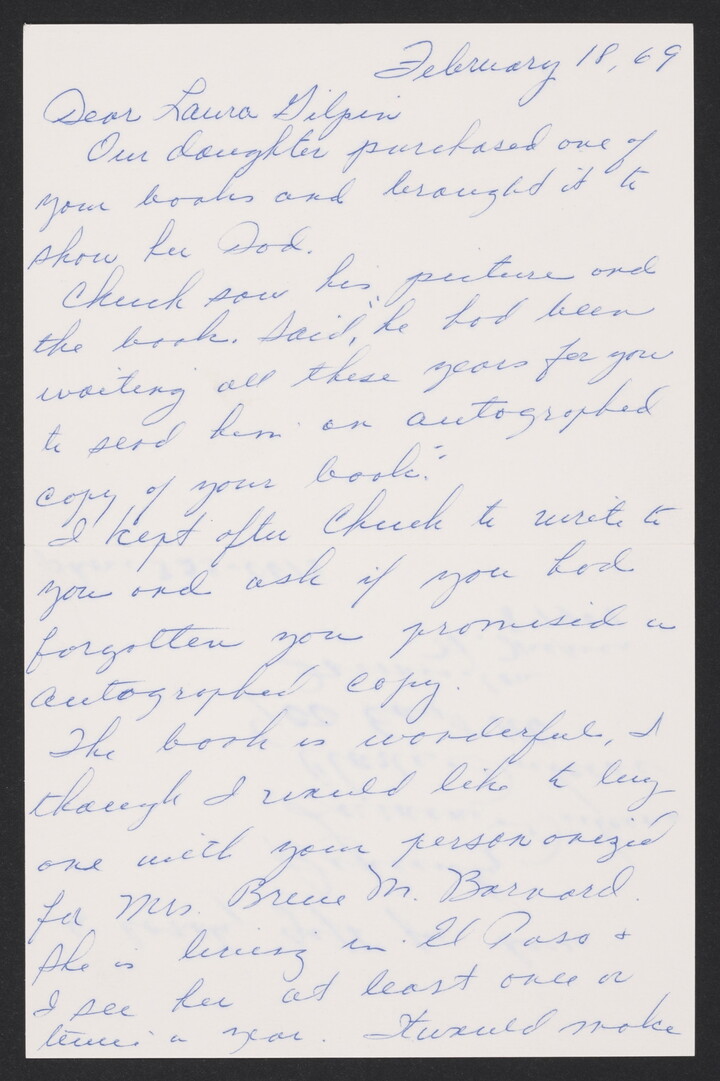 February 18, 69
Dear Laura Gilpin
Our daughter purchased one of
your books and brought it to
show her Dad.
Chuck saw his picture and
the book. Said, "he had been
waiting all these years for you
to send him an autographed
copy of your book."
I kept after Chuck to write to
you and ask if you had
forgotten you promised a
autographed copy.
The book is wonderful, I
though I would like to buy
one with your personanized
for Mrs. Bruce M. Barnard.
She is living in El Paso &
I see her at least once or
twice a year. It would make